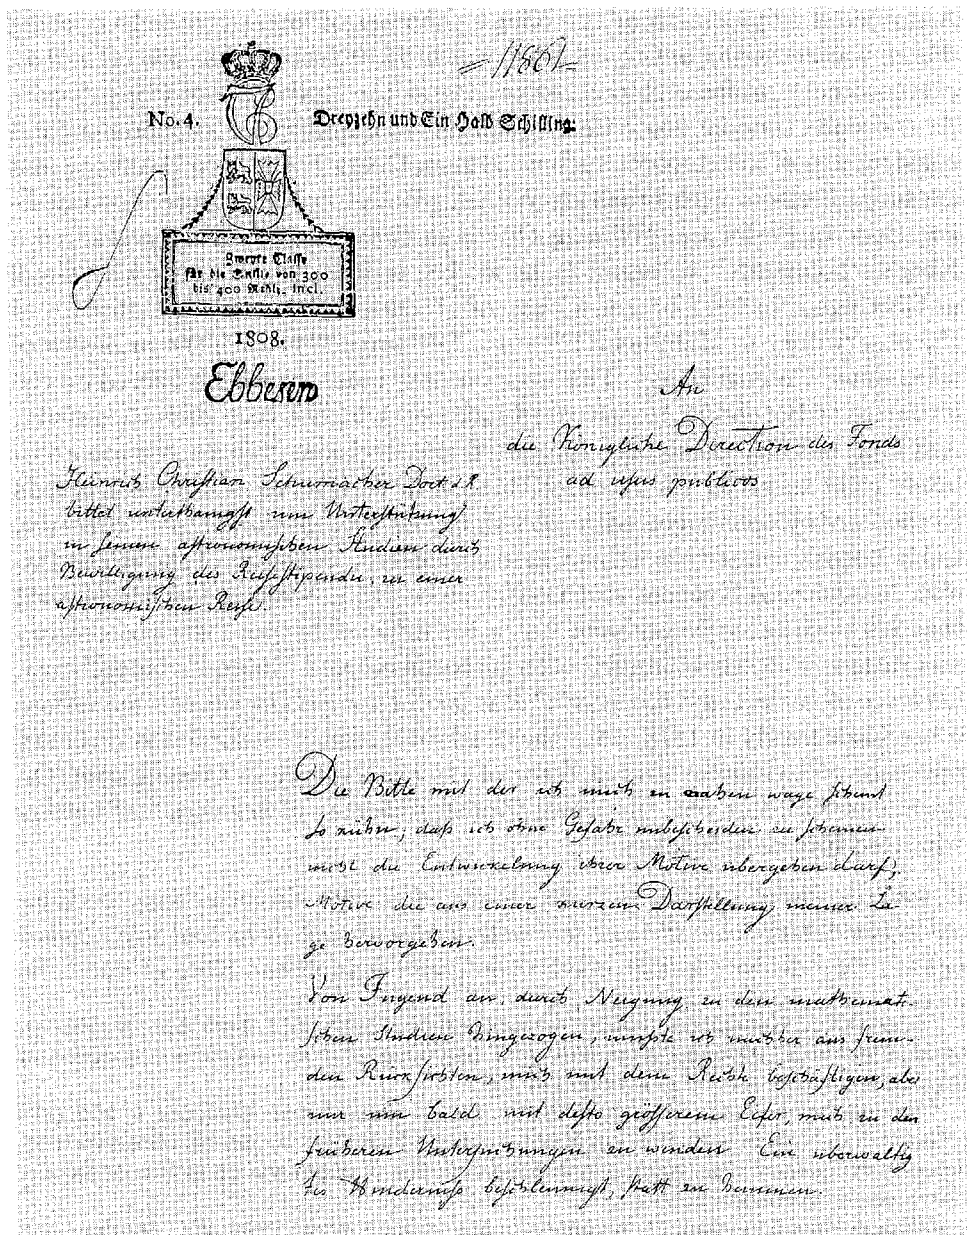 No. 4.
Dreyzehn und Ein Halb Schilling.
Zweyte Classe
für die Baslie von 300
bis 400 Rthlr. incl.
1808.
Ebbesen
An
die Königliche Direction des Fonds
ad usus publicos
Heinrich Christian Schumacher Doct. d. R.
bittet unterthänigst um Unterstützung
in seinen astronomischen Studien durch
Bewilligung des Reisestipendii, zu einer
astronomischen Reise.
Die Bitte mit der ich mich zu nahen wage scheint
so kühn, daß ich ohne Gefahr unbescheiden zu scheinen
nicht die Entwickelung ihrer Motive übergehen darf;
Motive die aus einer kurzen Darstellung meiner La
ge hervorgehen.
Von Jugend an durch Neigung zu den mathemati-
schen Studien hingezogen, mußte ich nachher aus frem-
den Rücksichten, mich mit dem Rechte beschäftigen, aber
nur um bald mit desto größerem Eifer, mich zu den
früheren Untersuchungen zu wenden Ein überwältig
tes Hinderniß beschleunigt, statt zu hemmen.